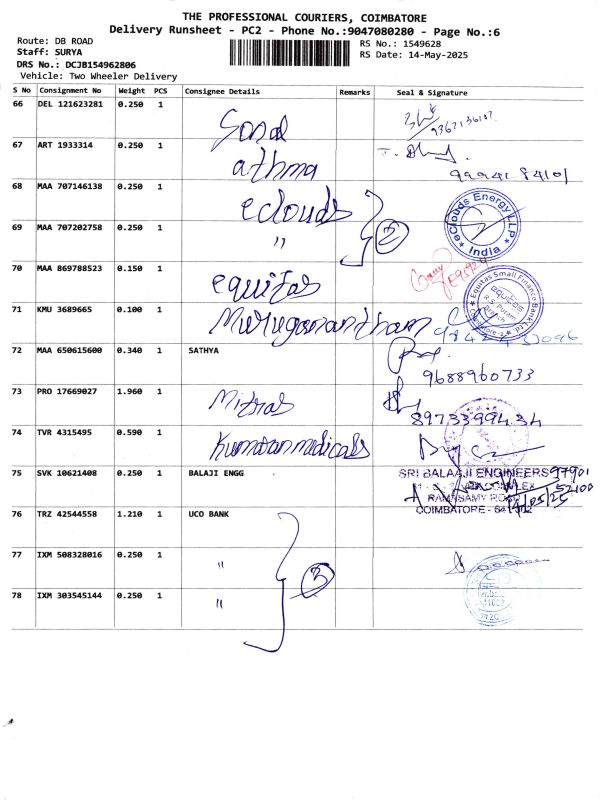 THE PROFESSIONAL COURIERS, COIMBATORE
Delivery Runsheet - PC2 - Phone No.:9047080280 - Page No.:6
Route: DB ROAD
RS No.: 1549628
Staff: SURYA
RS Date: 14-May-2025
DRS No.: DCJB154962806
Vehicle: Two Wheeler Delivery
S No Consignment No Weight PCS Consignee Details Remarks Seal & Signature
66 DEL 121623281 0.250 1
67 ART 1933314 0.250 1 athma
68 MAA 707146138 0.250 1 eclouds eClouds Energy LLP
69 MAA 707202758 0.250 1 " 2 India
70 MAA 869788523 0.150 1 equitas Equitas Small Finance Bank Ltd
equitas
R.S. Puram
Branch
71 KMU 3689665 0.100 1 Muruganantham
72 MAA 650615600 0.340 1 SATHYA 9688960733
73 PRO 17669027 1.960 1 8973399434
74 TVR 4315495 0.590 1 Kumaran medicals
75 SVK 10621408 0.250 1 BALAJI ENGG SRI BALAAJI ENGINEERS 97901
COMPLEX 52100
RAMASAMY ROAD
COIMBATORE
76 TRZ 42544558 1.210 1 UCO BANK
77 IXM 508328016 0.250 1 " 3
78 IXM 303545144 0.250 1 "